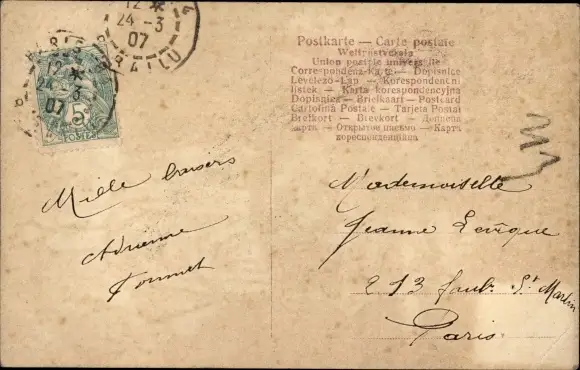 12 *
24 - 3
07
PARIS
12 *
24 - 3
07
5
POSTES
Postkarte — Carte postale
Weltpostverein
Union postale universelle
Correspondenz-Karte — Dopisnice
Levelező-Lap — Korespondenční
lístek — Karta korespondencyjna
Dopisnica — Briefkaart — Postcard
Cartolina Postale — Tarjeta Postal
Brefkort — Brevkort — Дописна
карта — Открытое письмо — Карта
кореспонденциона
Mille baisers
Adrienne
Mademoiselle
Jeanne Levêque
213 faub. St Martin
Paris